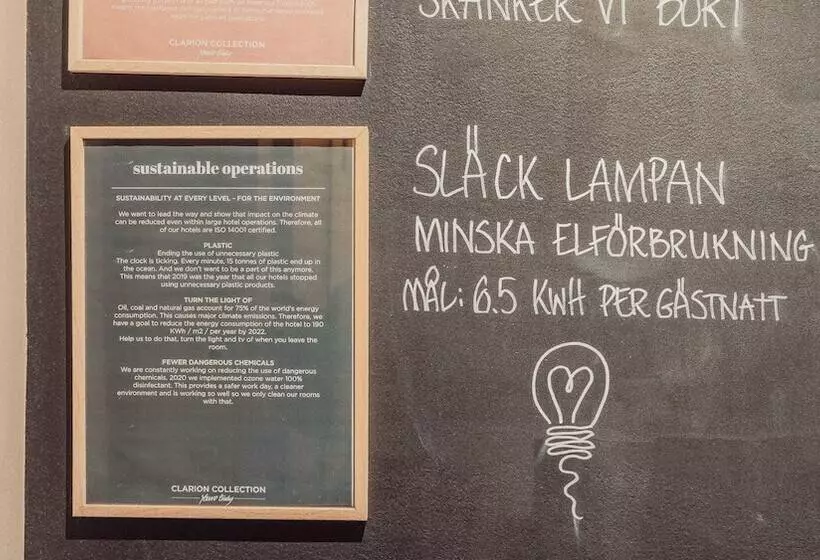 CLARION COLLECTION
SKÄNKER VI BORT
sustainable operations
SUSTAINABILITY AT EVERY LEVEL - FOR THE ENVIRONMENT
We want to lead the way and show that impact on the climate
can be reduced even within large hotel operations. Therefore, all
of our hotels are ISO 14001 certified.
PLASTIC
Ending the use of unnecessary plastic
The clock is ticking. Every minute, 15 tonnes of plastic end up in
the ocean. And we don't want to be a part of this anymore.
This means that 2019 was the year that all our hotels stopped
using unnecessary plastic products.
TURN THE LIGHT OF
Oil, coal and natural gas account for 75% of the world's energy
consumption. This causes major climate emissions. Therefore, we
have a goal to reduce the energy consumption of the hotel to 190
KWh / m2 / per year by 2022.
Help us to do that, turn the light and tv of when you leave the
room.
FEWER DANGEROUS CHEMICALS
We are constantly working on reducing the use of dangerous
chemicals. 2020 we implemented ozone water 100%
disinfectant. This provides a safer work day, a cleaner
environment and is working so well so we only clean our rooms
with that.
CLARION COLLECTION
SLÄCK LAMPAN
MINSKA ELFÖRBRUKNING
MÅL: 6.5 KWH PER GÄSTNATT